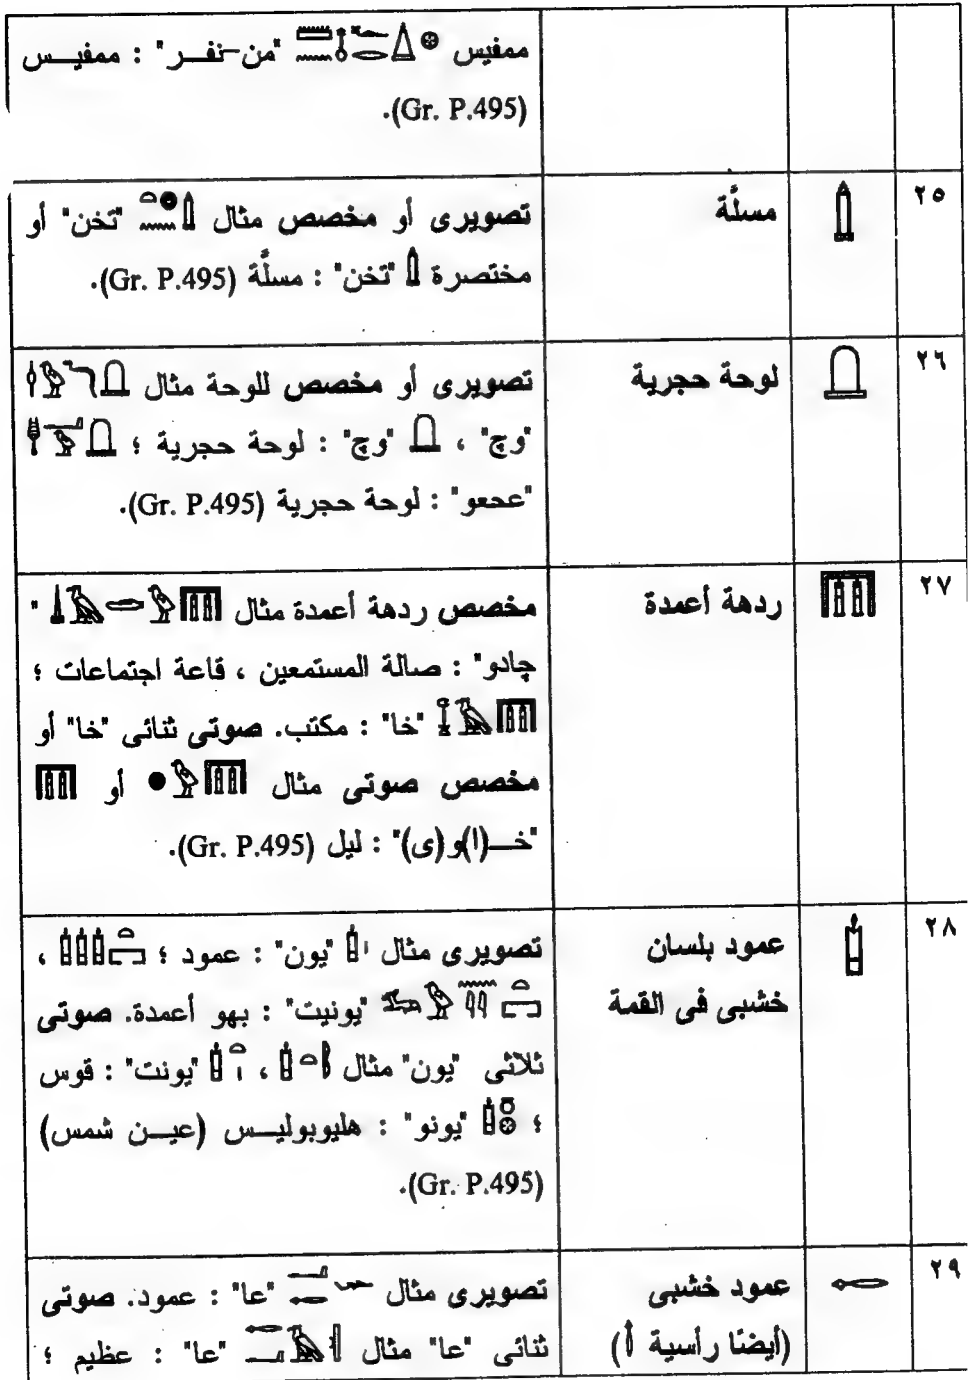 ممفيس "من-نفــر" : ممفيــس
(Gr. P.495).
٢٥ مسلَّة تصويرى أو مخصص مثال "تخن" أو
مختصرة "تخن" : مسلَّة (Gr. P.495).
٢٦ لوحة حجرية تصويرى أو مخصص للوحة مثال
"وچ" ، "وچ" : لوحة حجرية ؛
"عحعو" : لوحة حجرية (Gr. P.495).
٢٧ ردهة أعمدة مخصص ردهة أعمدة مثال "
چادو" : صالة المستمعين ، قاعة اجتماعات ؛
"خا" : مكتب. صوتى ثنائى "خا" أو
مخصص صوتى مثال أو
"خــ(ا)و(ى)" : ليل (Gr. P.495).
٢٨ عمود بلسان تصويرى مثال "يون" : عمود ؛ ،
خشبى فى القمة "يونيت" : بهو أعمدة. صوتى
ثلاثى "يون" مثال ، "يونت" : قوس
؛ "يونو" : هليوبوليــس (عيــن شمس)
(Gr. P.495).
٢٩ عمود خشبى تصويرى مثال "عا" : عمود. صوتى
(أيضًا رأسية ) ثنائى "عا" مثال "عا" : عظيم ؛